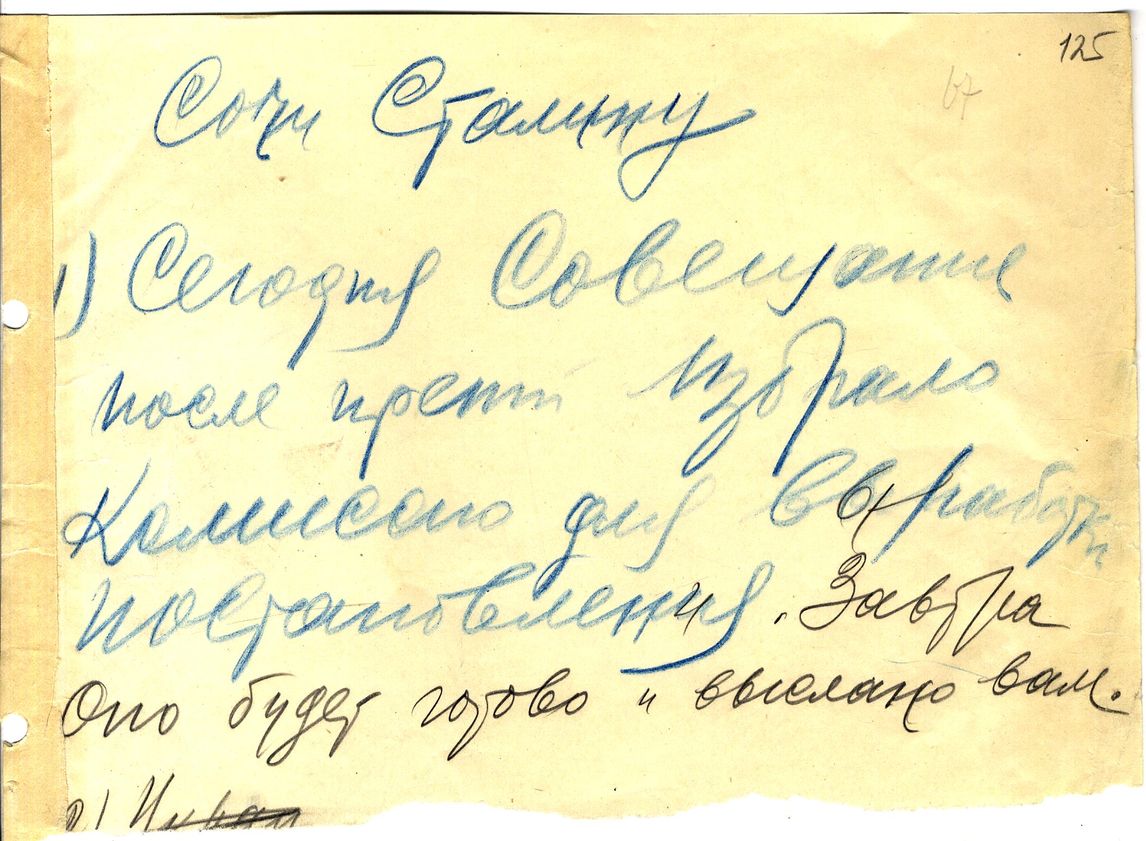 125
67
Сочи Сталину
1) Сегодня Совещание
после прений избрало
Комиссию для выработки
постановления. Завтра
Оно будет готово и выслано вам.
2)